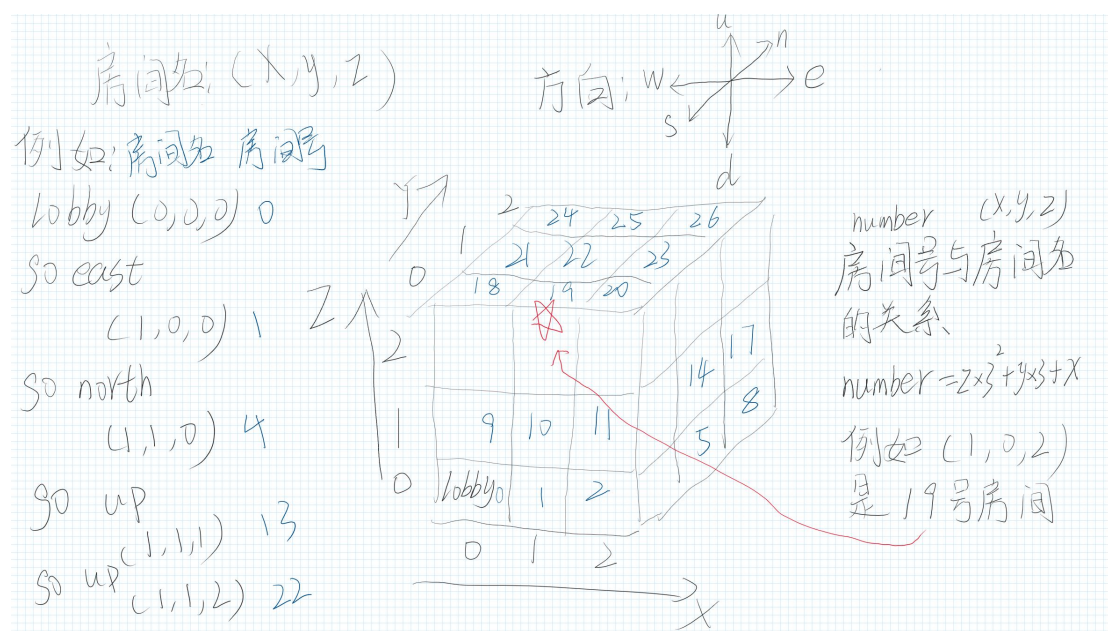 房间名:(X,y,z)
例如:房间名 房间号
lobby (0,0,0) 0
go east
(1,0,0) 1
go north
(1,1,0) 4
go up
(1,1,1) 13
go up
(1,1,2) 22
方向:
u
n
w
e
s
d
Y
2
1
0
24 25 26
21 22 23
18 19 20
Z
2
1
0
9 10 11
lobby 0 1 2
14 17
5 8
0 1 2
X
number (x,y,z)
房间号与房间名
的关系
number=z×3²+y×3+x
例如 (1,0,2)
是19号房间